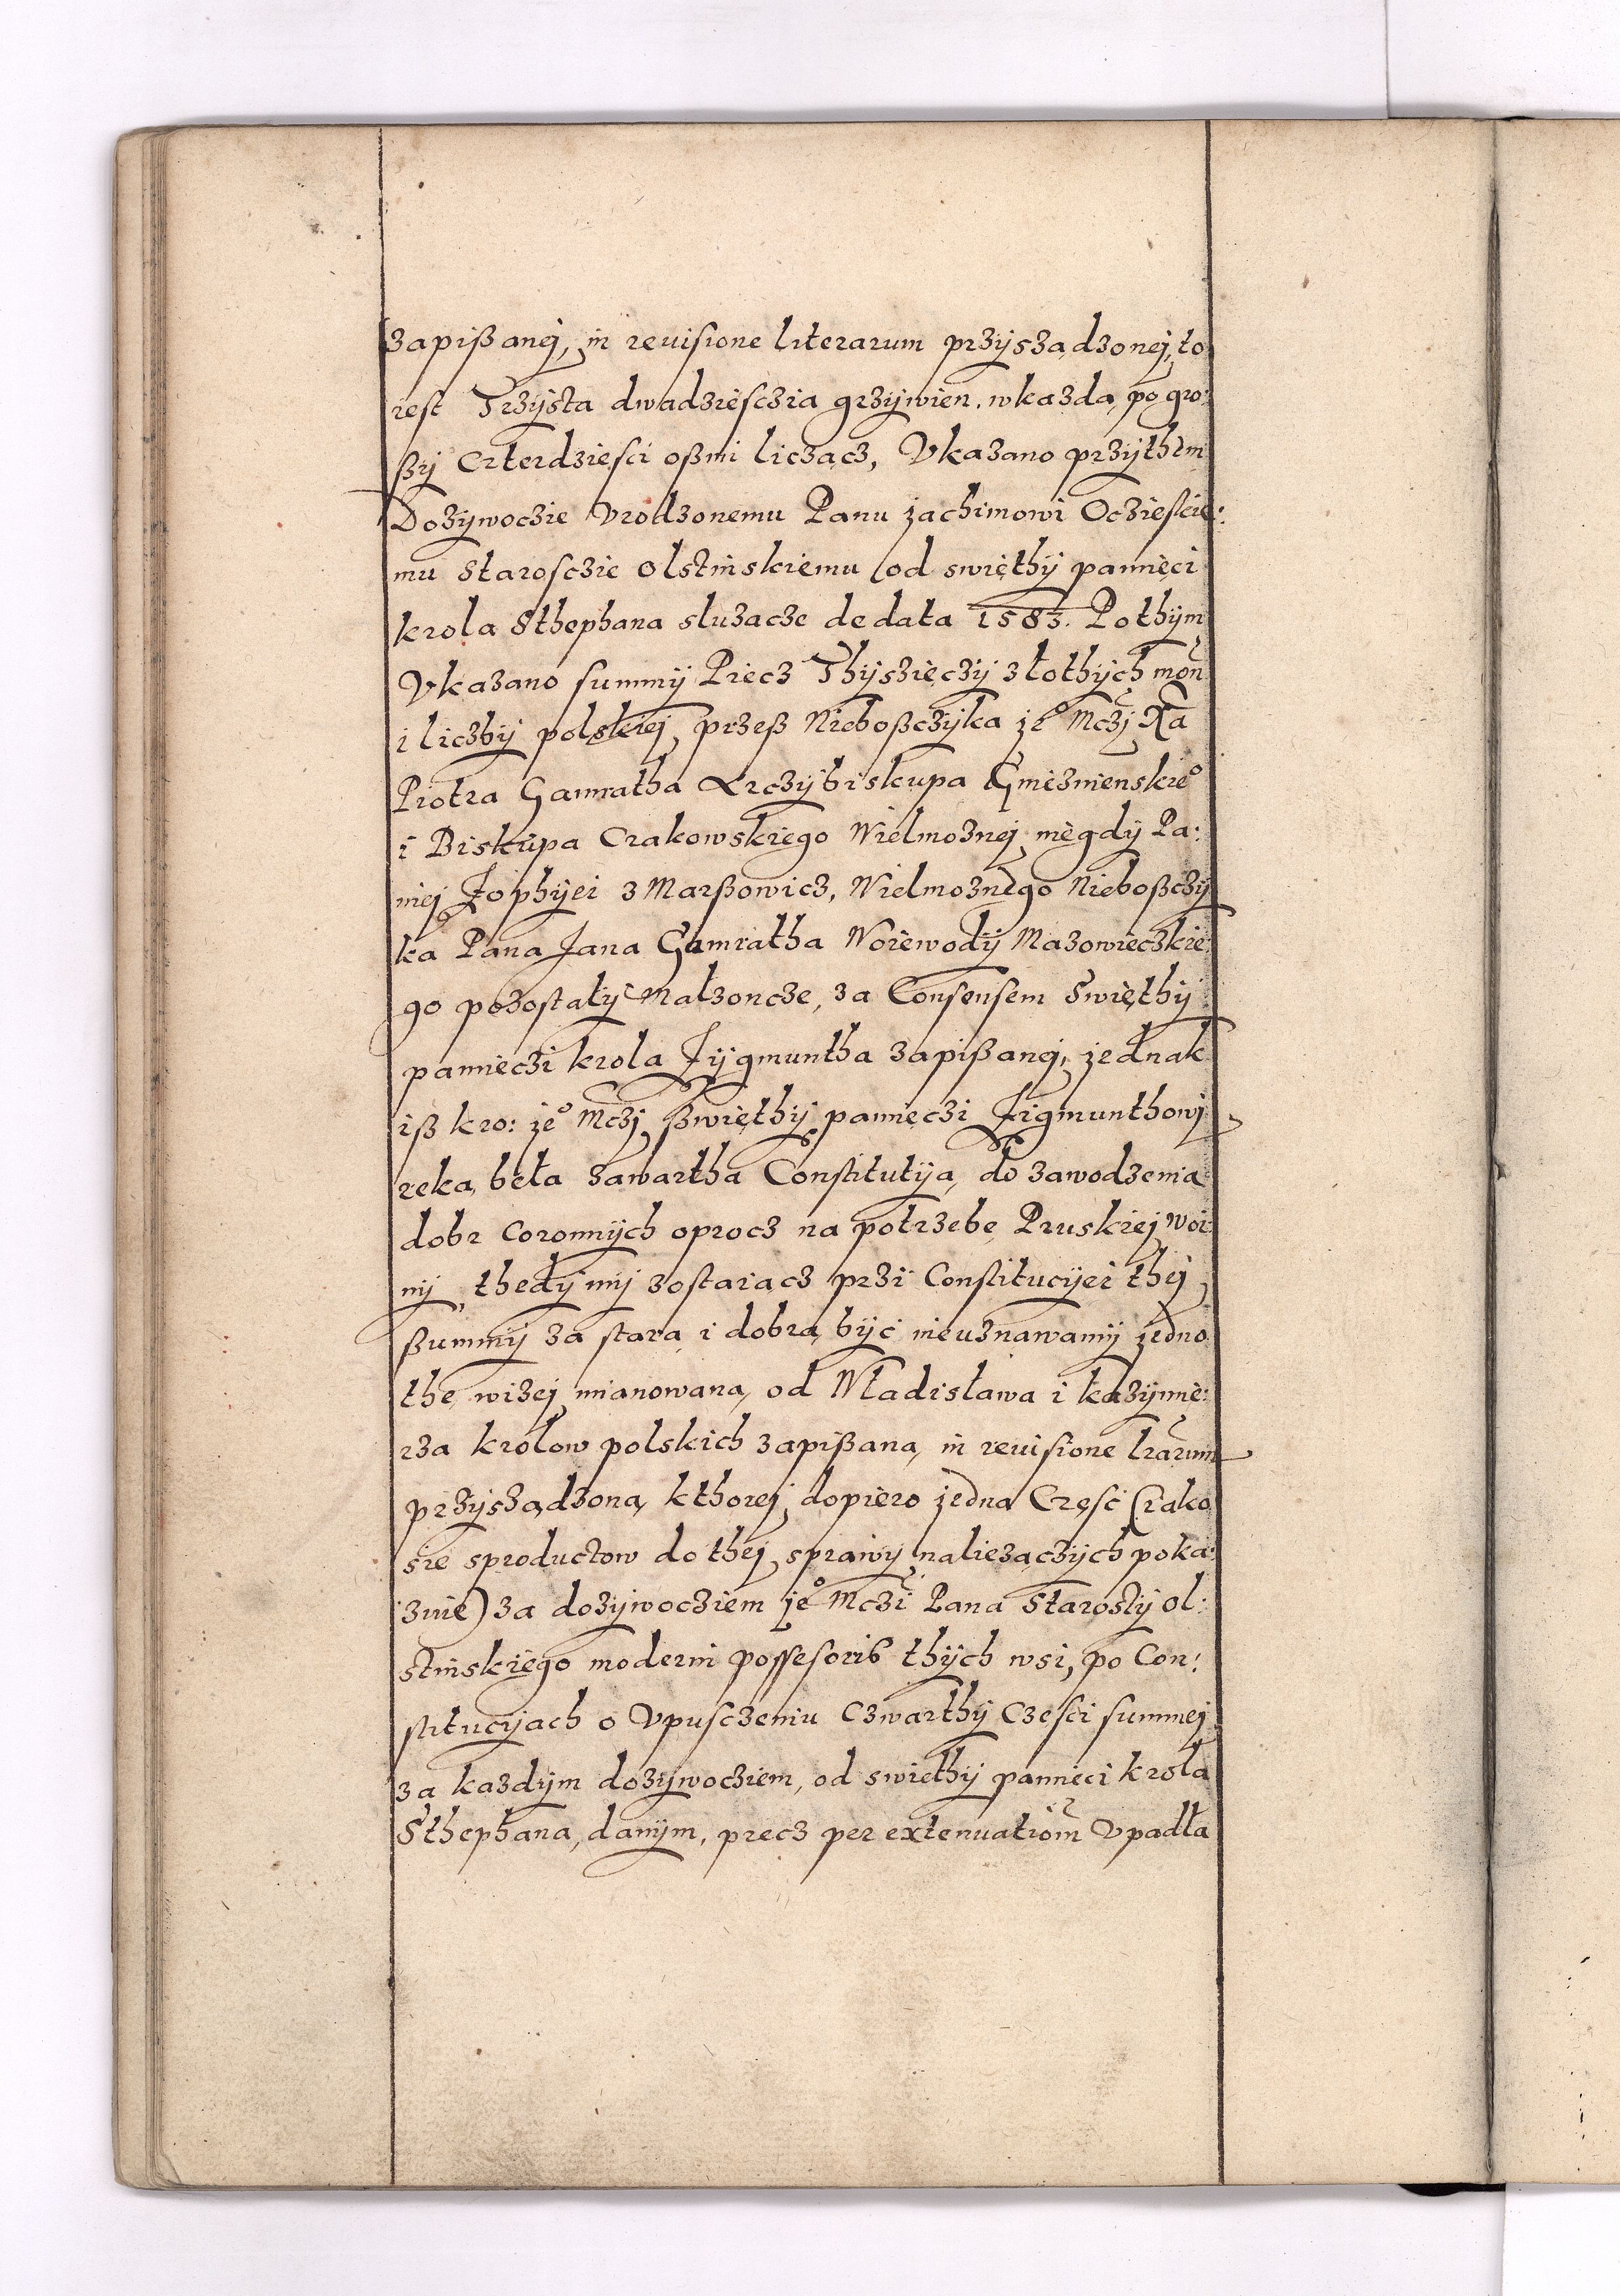 zapißanej, in reuisione literarum przÿsządzonej, to
iest Trzÿsta dwadziesczia grzÿwien, wkazdą po gro:
ßÿ Czterdziesci oßmi licząc̨z, Vkazano przÿthem
Dozÿwoczie Vrodzonemu Panu jachimowi Oczieskie:
mu Starosczie Olstinskiemu od swięthÿ pamięci
krola Sthephana sluzącze de data 1583. Pothÿm
Vkazano summÿ Piecz Thÿsięczÿ złothÿch mon
i liczbÿ polskiej, przeß Nieboßczÿka je° Mczj Xa
Piotra Gamratha Arczÿbiskupa Gnieznienskie°
i Biskupa Crakowskiego Wielmoznej niegdÿ Pa:
niej Zophÿei z Marßowicz, Wielmoznego Nieboßczÿ
ka Pana Jana Gamratha Woiewodÿ Mazowieczkie:
go pozostałÿ Małzoncze, za Consensem Swięthÿ
pamięczi krola Zÿgmuntha zapißanej, jednak
iß kro: je° Mczj ßwięthÿ pamięczi Zigmunthowj
ręka beła zawartha Constitutÿa, do zawodzenia
dobr Coronnÿch oprocz na potrzebę Pruskiej woi:
nÿ, thedÿ mÿ zostaiącz przi Constitucÿei thej
ßummÿ za starą i dobrą bÿć nieuznawamÿ jedno
the wizej mianowaną, od Władisława i kazÿmie:
rza krolow polskich zapißaną, in reuisione lrarum
przÿsządzoną, kthorej dopiero jedna Część (iako
sie sproductow do thej sprawÿ naliezączÿch poka:
zuie) za dozÿwocziem je° Mczi Pana Starostÿ Ol:
stinskiego moderni possesoris thÿch wsi, po Con:
stitucÿach o Vpusczeniu Czwarthÿ Czesci summej
za kazdÿm dozÿwocziem, od swiethÿ pamięci krola
Sthephana, danÿm, precz per extenuationem Vpadła